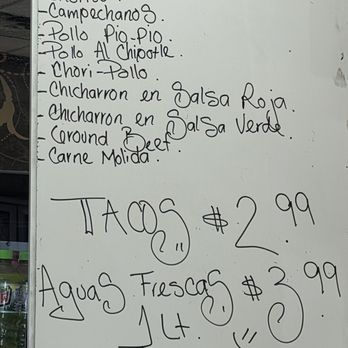 -Campechanos.
-Pollo Pio-Pio.
-Pollo Al Chipotle.
-Chori-Pollo.
-Chicharron en Salsa Roja.
-Chicharron en Salsa Verde.
-Ground Beef.
-Carne Molida.
TACOS $2.99
Aguas Frescas $3.99
1 Lt.